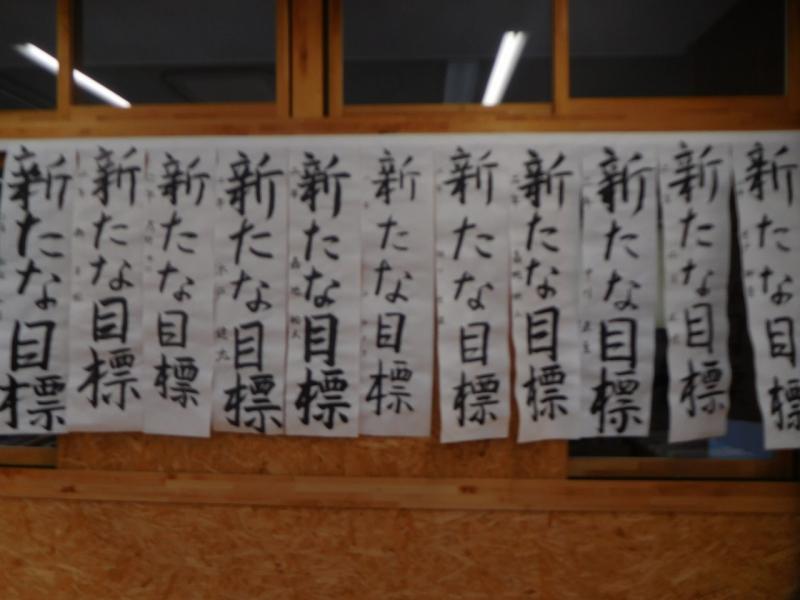 新たな目標
新たな目標
新たな目標
新たな目標
新たな目標
新たな目標
新たな目標
新たな目標
新たな目標
新たな目標
新たな目標